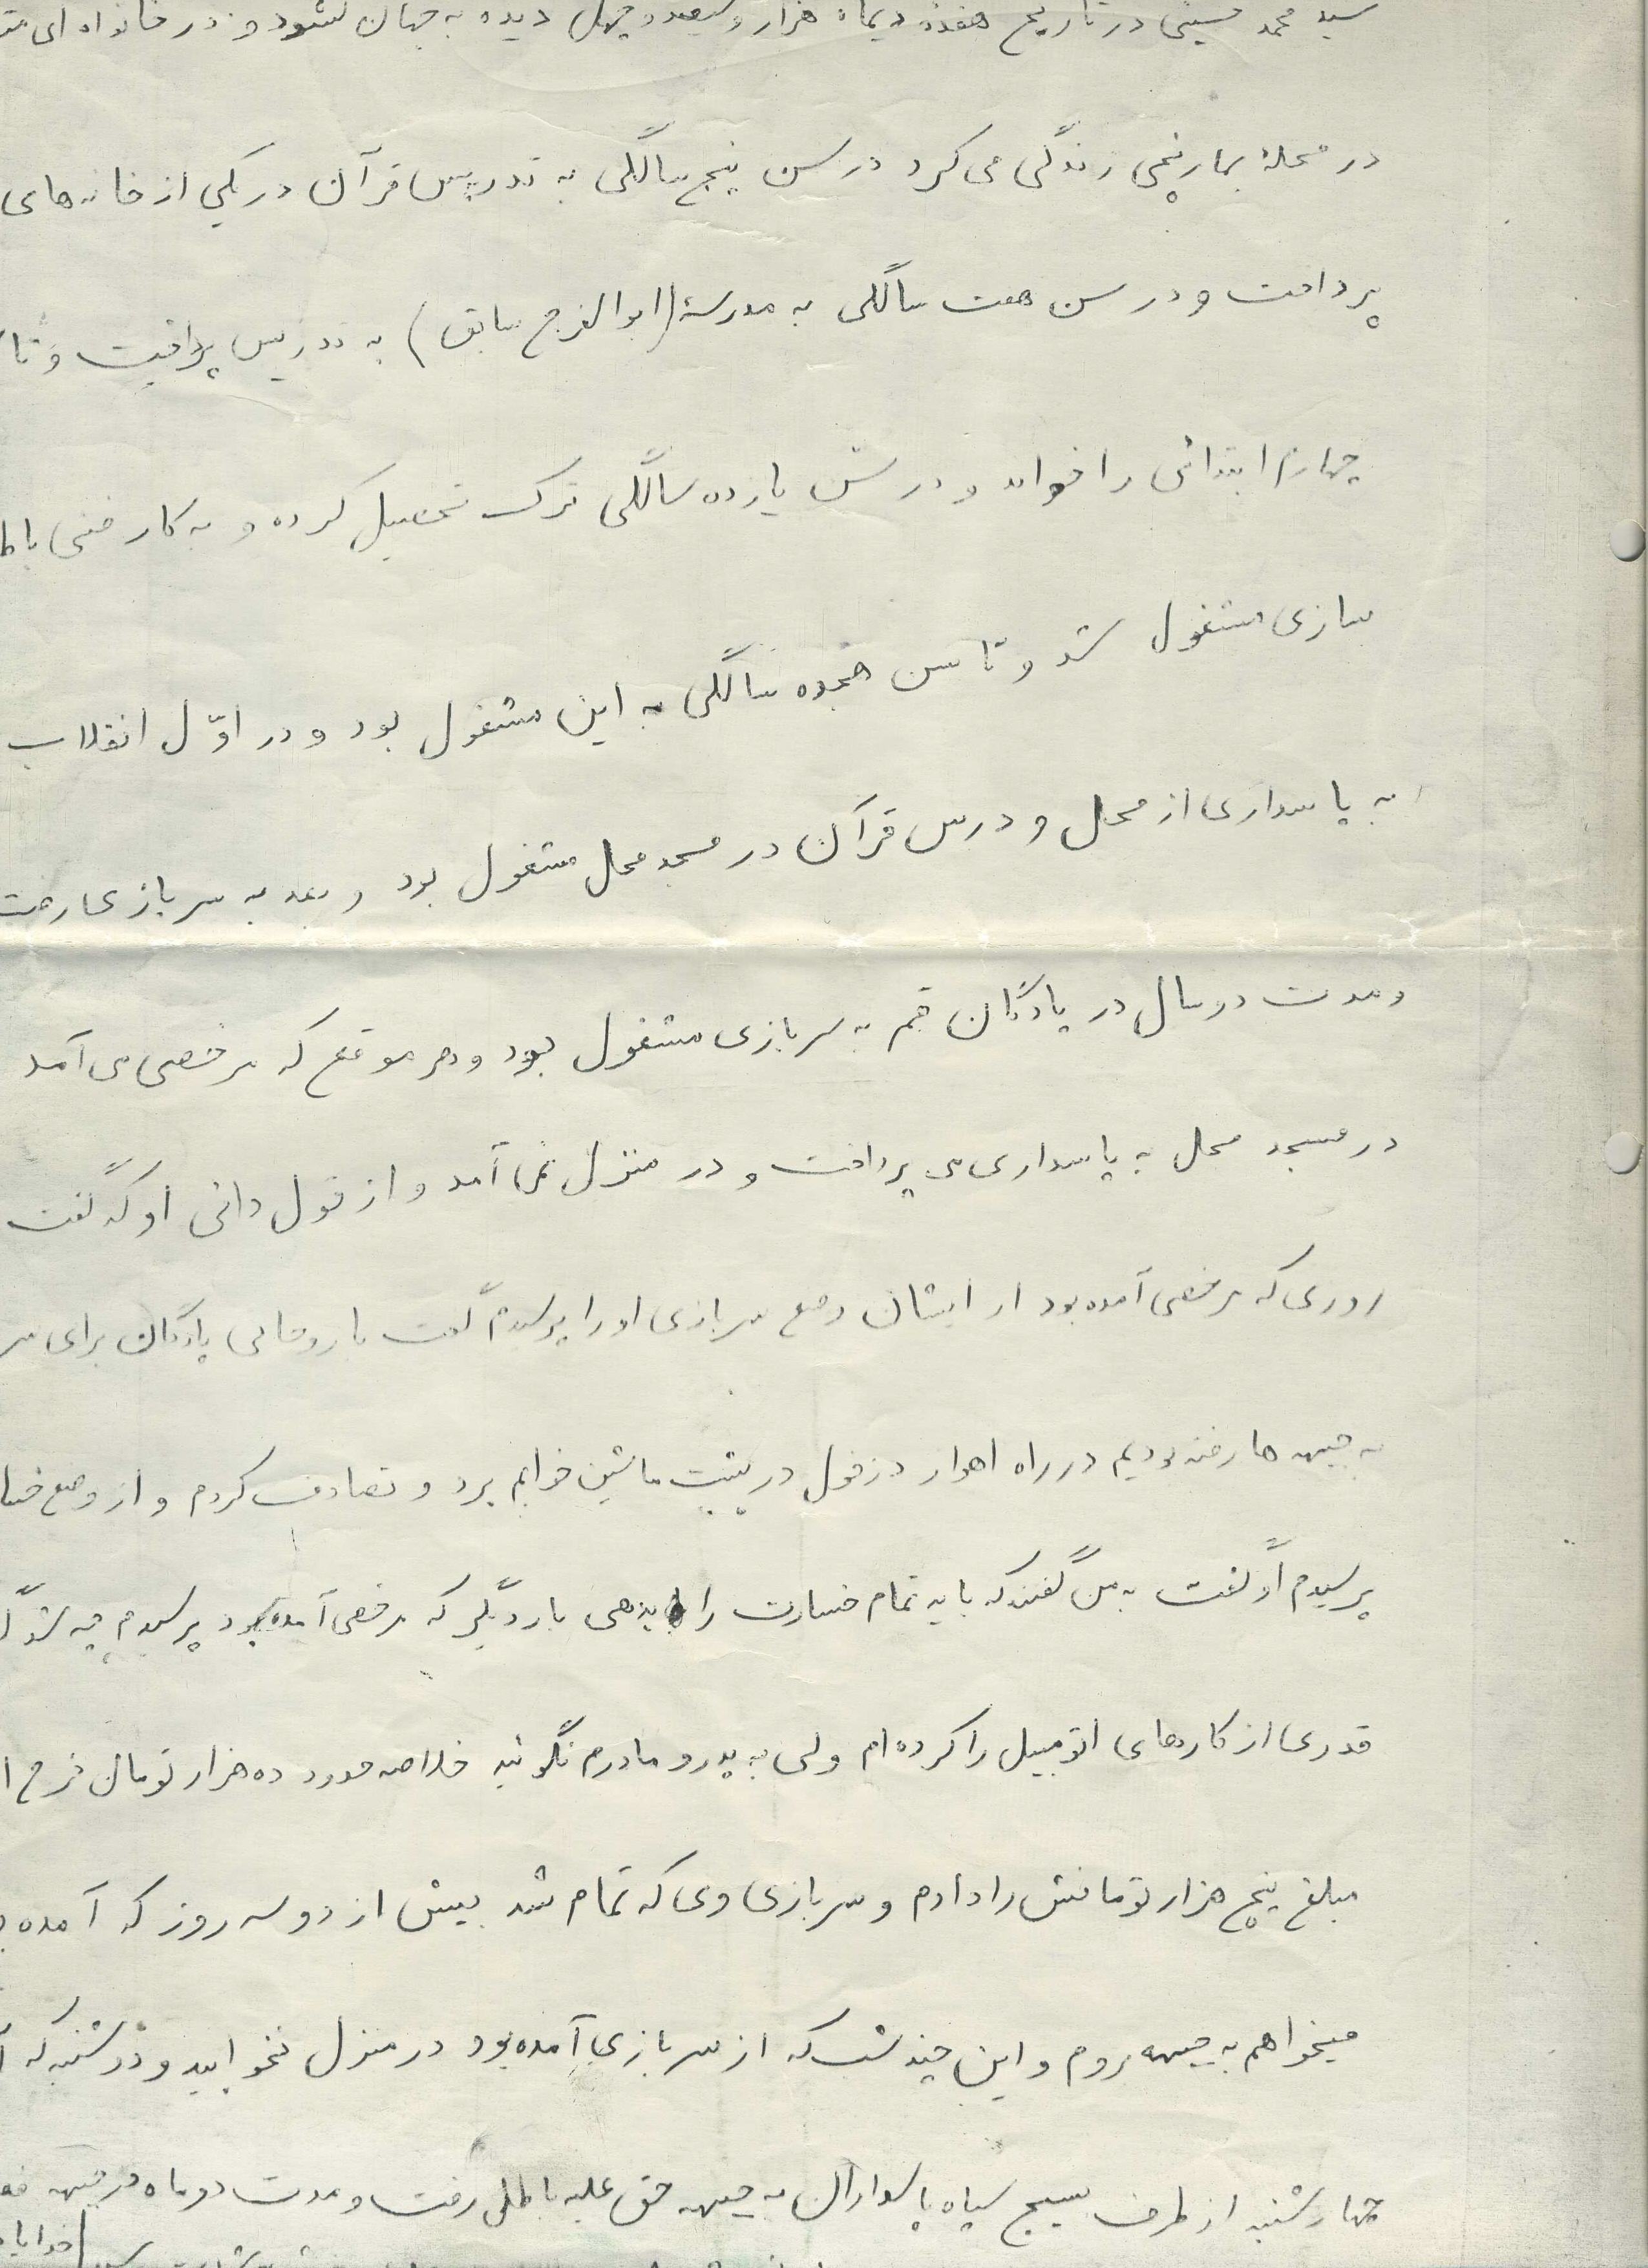 سید محمد حسینی در تاریخ هفده دیماه هزار و سیصد و چهل دیده به جهان گشود و در خانواده ای
در محلهٔ بمارنچی زندگی می کرد در سن پنج سالگی به تدریس قرآن در یکی از خانه های
پرداخت و در سن هفت سالگی به مدرسهٔ (ابوالفرج سابق) به تدریس پرداخت و تا
چهارم ابتدائی را خواند و در سن یازده سالگی ترک تحصیل کرده و به کار فنی
سازی مشغول شد و تا سن هجده سالگی به این مشغول بود و در اوّل انقلاب
به پاسداری از محل و درس قرآن در مسجد محل مشغول بود و بعد به سربازی رفت
و مدت دو سال در پادگان قم به سربازی مشغول بود و هر موقع که مرخصی می آمد
در مسجد محل به پاسداری می پرداخت و در منزل نمی آمد و از قول دائی او که گفت
روزی که مرخصی آمده بود از ایشان وضع سربازی او را پرسیدم گفت با روحانی پادگان برای
به جبهه ها رفته بودیم در راه اهواز دزفول در پشت ماشین خوابم برد و تصادف کردم و از وضع
پرسیدم او گفت به من گفتند که باید تمام خسارت را بدهی بار دیگر که مرخصی آمده بود پرسیدم چه شد
قدری از کارهای اتومبیل را کرده ام ولی به پدر و مادرم نگوئید خلاصه حدود ده هزار تومان خرج
مبلغ پنج هزار تومانش را دادم و سربازی وی که تمام شد بیش از دو سه روز که آمده
میخواهم به جبهه بروم و این چند شب که از سربازی آمده بود در منزل نخوابید و در شنبه که
چهارشنبه از طرف بسیج سپاه پاسداران به جبهه حق علیه باطل رفت و مدت دو ماه در جبهه